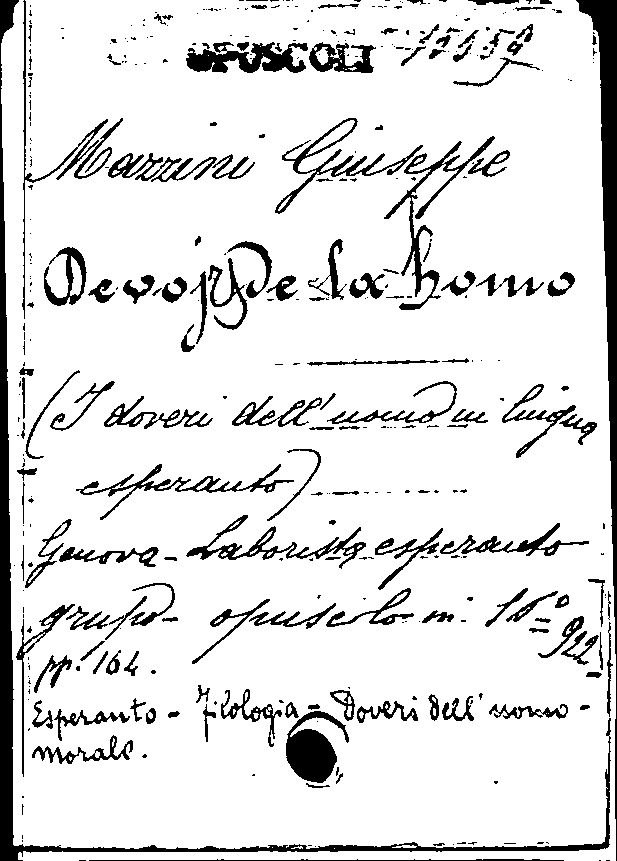 OPUSCOLI 15159
Mazzini Giuseppe
Devoj de la homo
(I doveri dell'uomo in lingua
esperanto)
Genova - Laborista esperanto
grupo - opuscolo in 16º 922
pp. 164.
Esperanto - Filologia - Doveri dell'uomo -
morale.